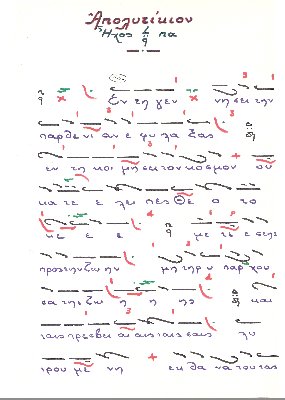 Ἀπολυτίκιον
Ἦχος πα
Ἐν τη γεν νη σει την
παρθε νι αν ε φυ λα ξας
εν τη κοι μη σει τον κοσμον ου
κα τε ε λι πες Θε ο το
κε ε ε με τε ε στης
προς την ζω ην μη τηρ υ παρ χου
σα της ζω η ης και
ταις πρεσβει αι αις ταις σαις λυ
τρου με νη εκ θα να του τας